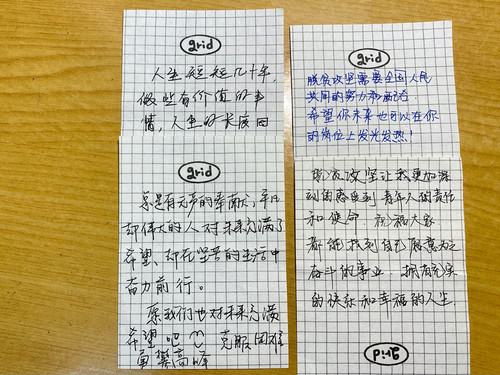 grid
人生短短几十年,
做些有价值的事
情,人生的长度由
grid
总是有无声的奉献,平凡
却伟大的人对未来充满了
希望、却在坚苦的生活中
奋力前行。
愿我们也对未来充满
希望吧 克服困难
勇攀高峰
grid
脱贫攻坚需要全国人民
共同的努力和
希望你未来也可以在你
的岗位上发光发热!
脱贫攻坚让我更加深
刻的感受到 青年人的责任
和使命 祝福大家
都能找到自己愿意为之
奋斗的事业 拥有充实
的快乐和幸福的人生
grid